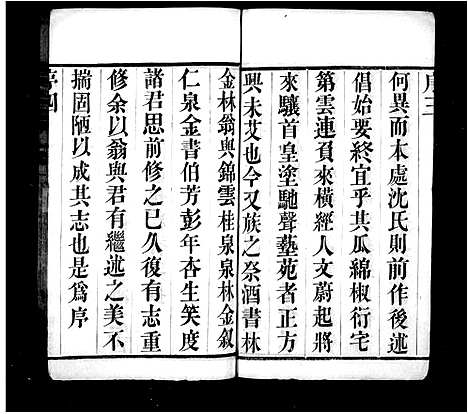 序三
何異而本處沈氏則前作後述
倡始要終宜乎其瓜綿椒衍宅
第雲連頁來橫經人文蔚起將
來驤首皇塗馳聲藝苑者正方
興未艾也今又族之祭酒書林
金林翁與錦雲桂泉泉林金叙
仁泉金書伯芳彭年杏生笑度
諸君思前修之已久復有志重
修余以翁與君有繼述之美不
揣固陋以成其志也是爲序
序四